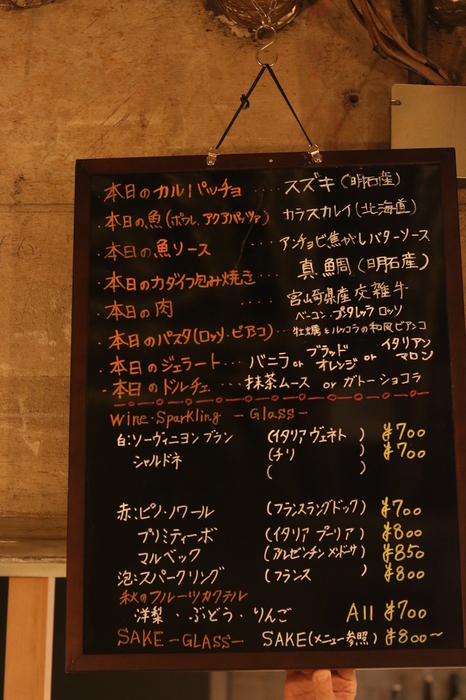 ・本日のカルパッチョ ‥‥ スズキ(明石産)
・本日の魚(ポワレ、アクアパッツァ) カラスカレイ(北海道)
・本日の魚ソース ‥‥ アンチョビ焦がしバターソース
・本日のカダイフ包み焼き‥‥ 真鯛(明石産)
・本日の肉 ‥‥ 宮崎県産交雑牛
・本日のパスタ(ロッソ・ビアンコ)‥‥ ベーコン・ロッソ
牡蠣とルッコラの和風ビアンコ
・本日のジェラート‥‥ バニラ or ブラッドオレンジ or イタリアンマロン
・本日のドルチェ ‥‥ 抹茶ムース or ガトーショコラ
Wine・Sparkling －Glass－
白:ソーヴィニヨン ブラン (イタリア ヴェネト) ¥700
シャルドネ (チリ ) ¥700
( )
赤:ピノ・ノワール (フランスラングドック) ¥700
プリミティーボ (イタリア プーリア) ¥800
マルベック (アルゼンチン メンドーサ) ¥850
泡:スパークリング (フランス ) ¥800
秋のフルーツカクテル
洋梨 ・ ぶどう ・ りんご All ¥700
SAKE －GLASS－ SAKE(メニュー参照) ¥800～